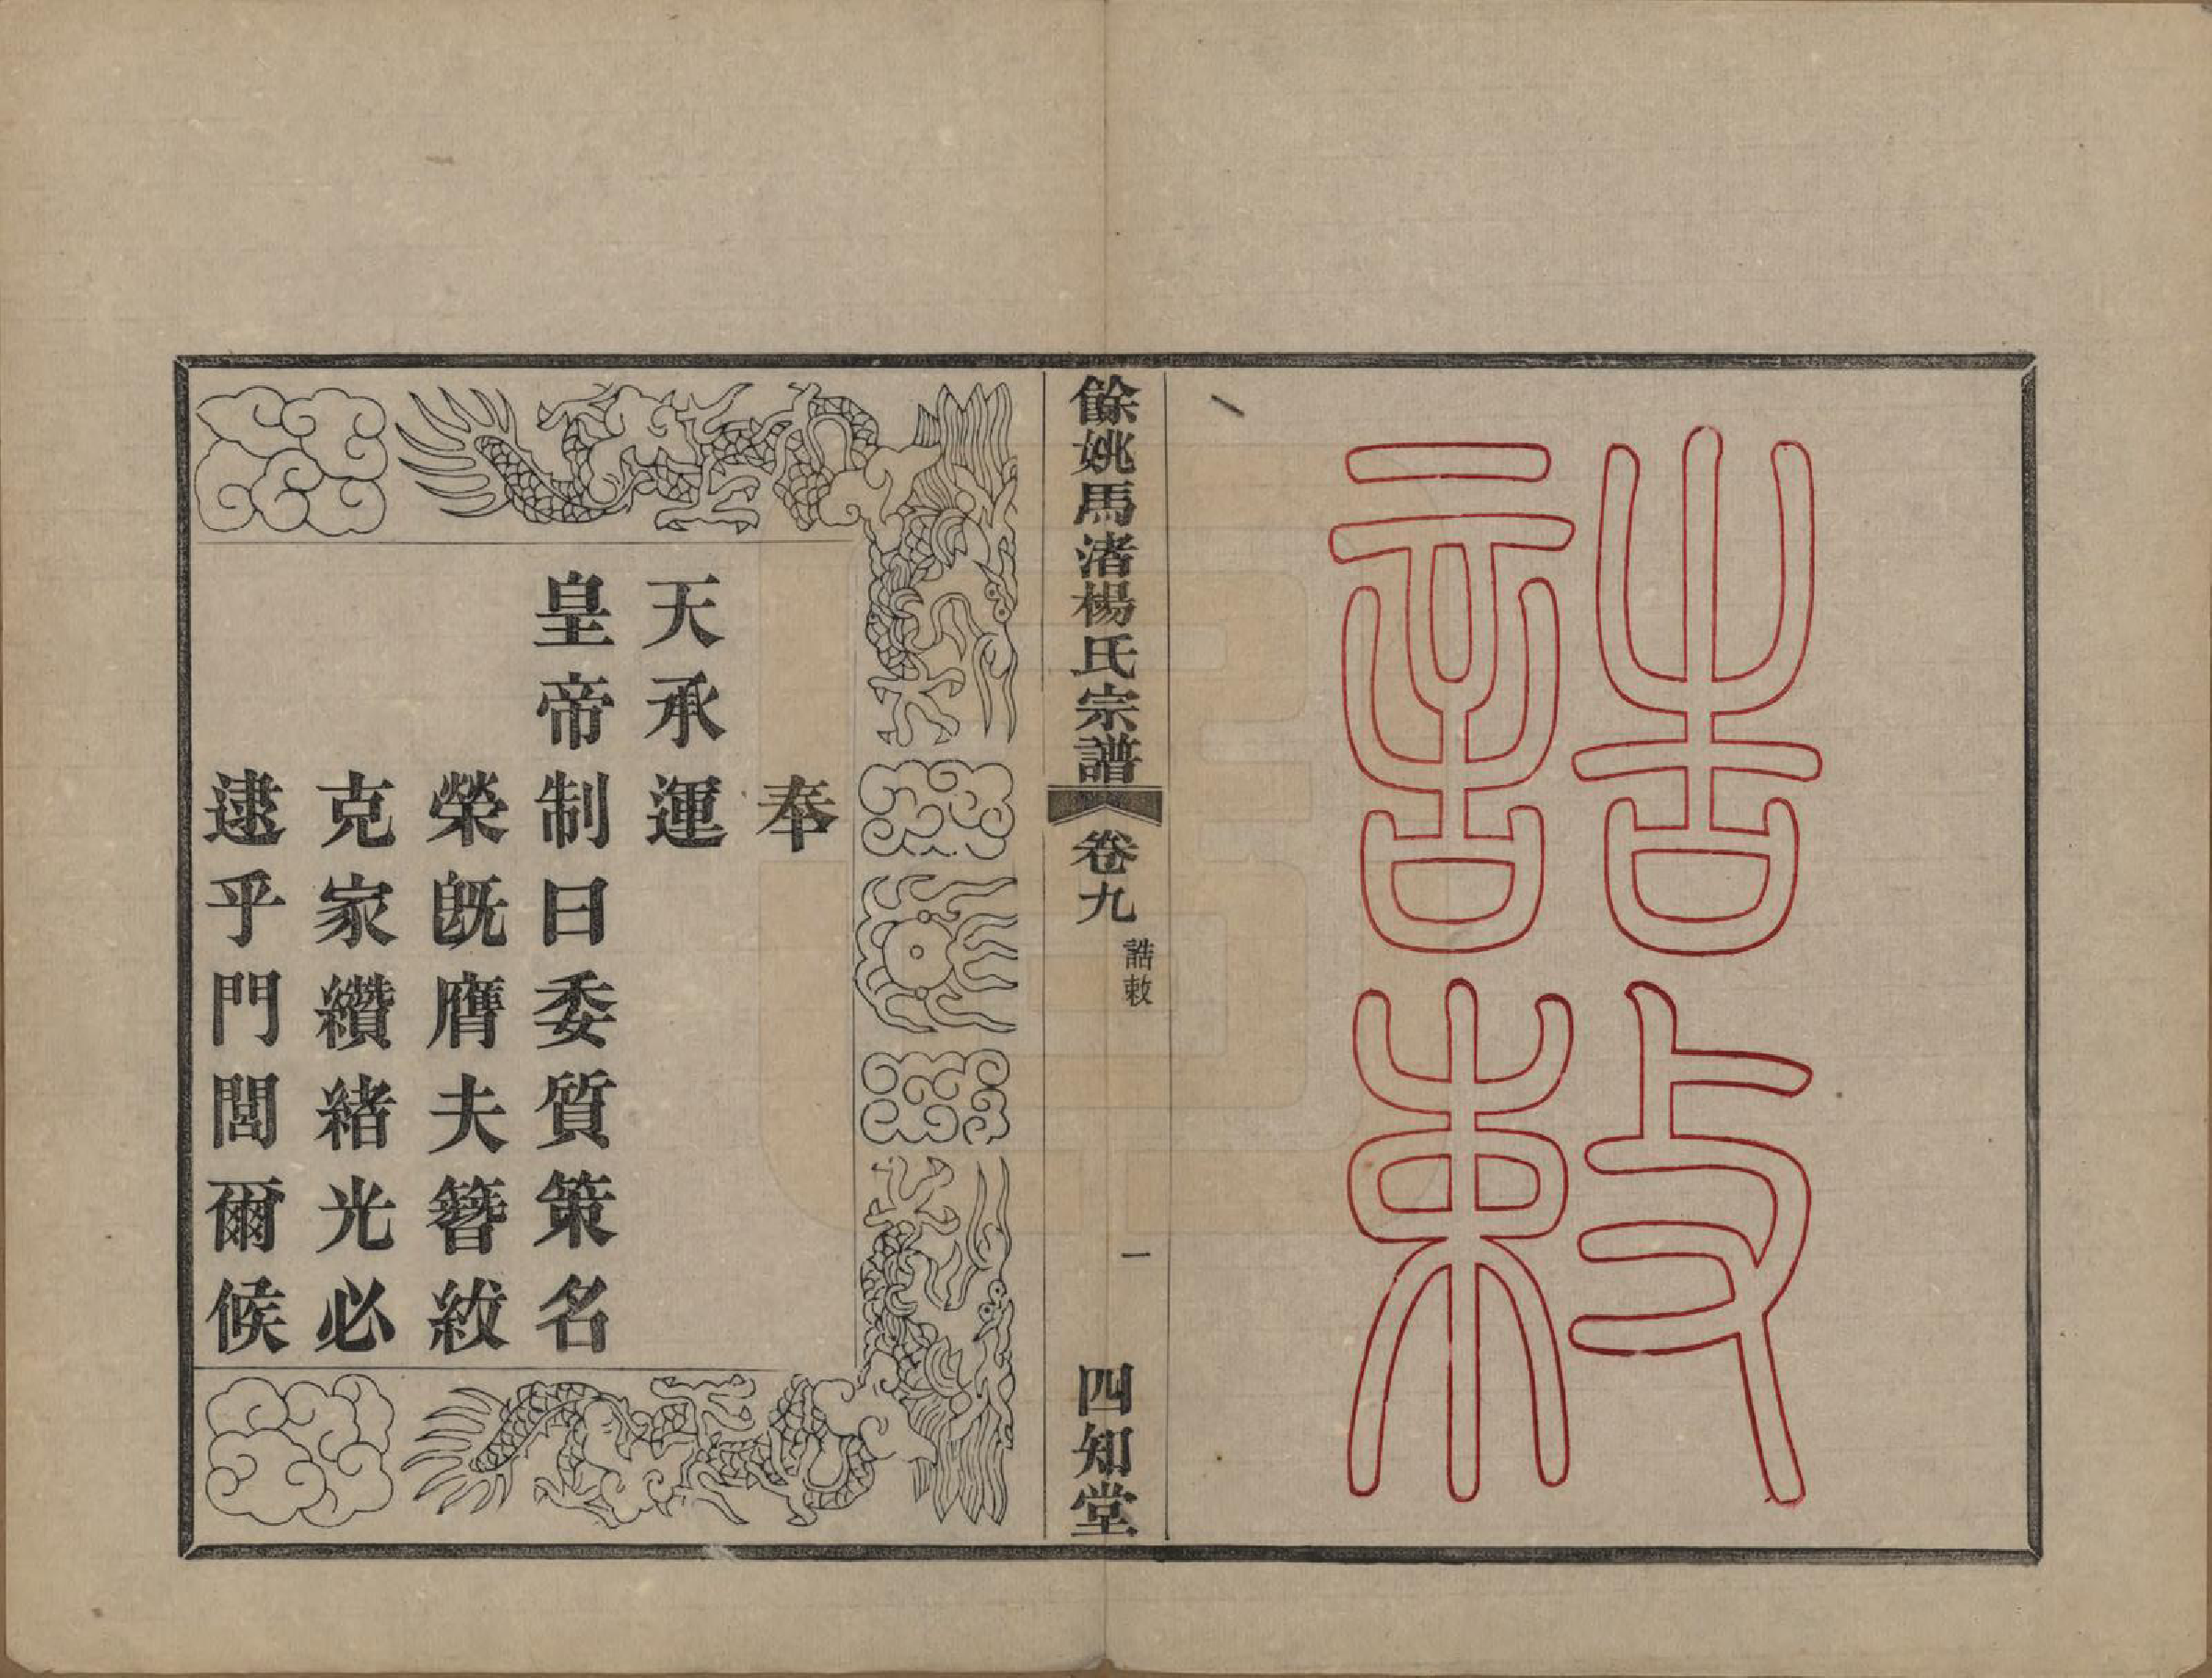 誥敕
餘姚馬渚楊氏宗譜
卷九
誥敕
一
四知堂
奉
天承運
皇帝制曰委質策名
榮既膺夫簪紱
克家纘緒光必
逮乎門閭爾候